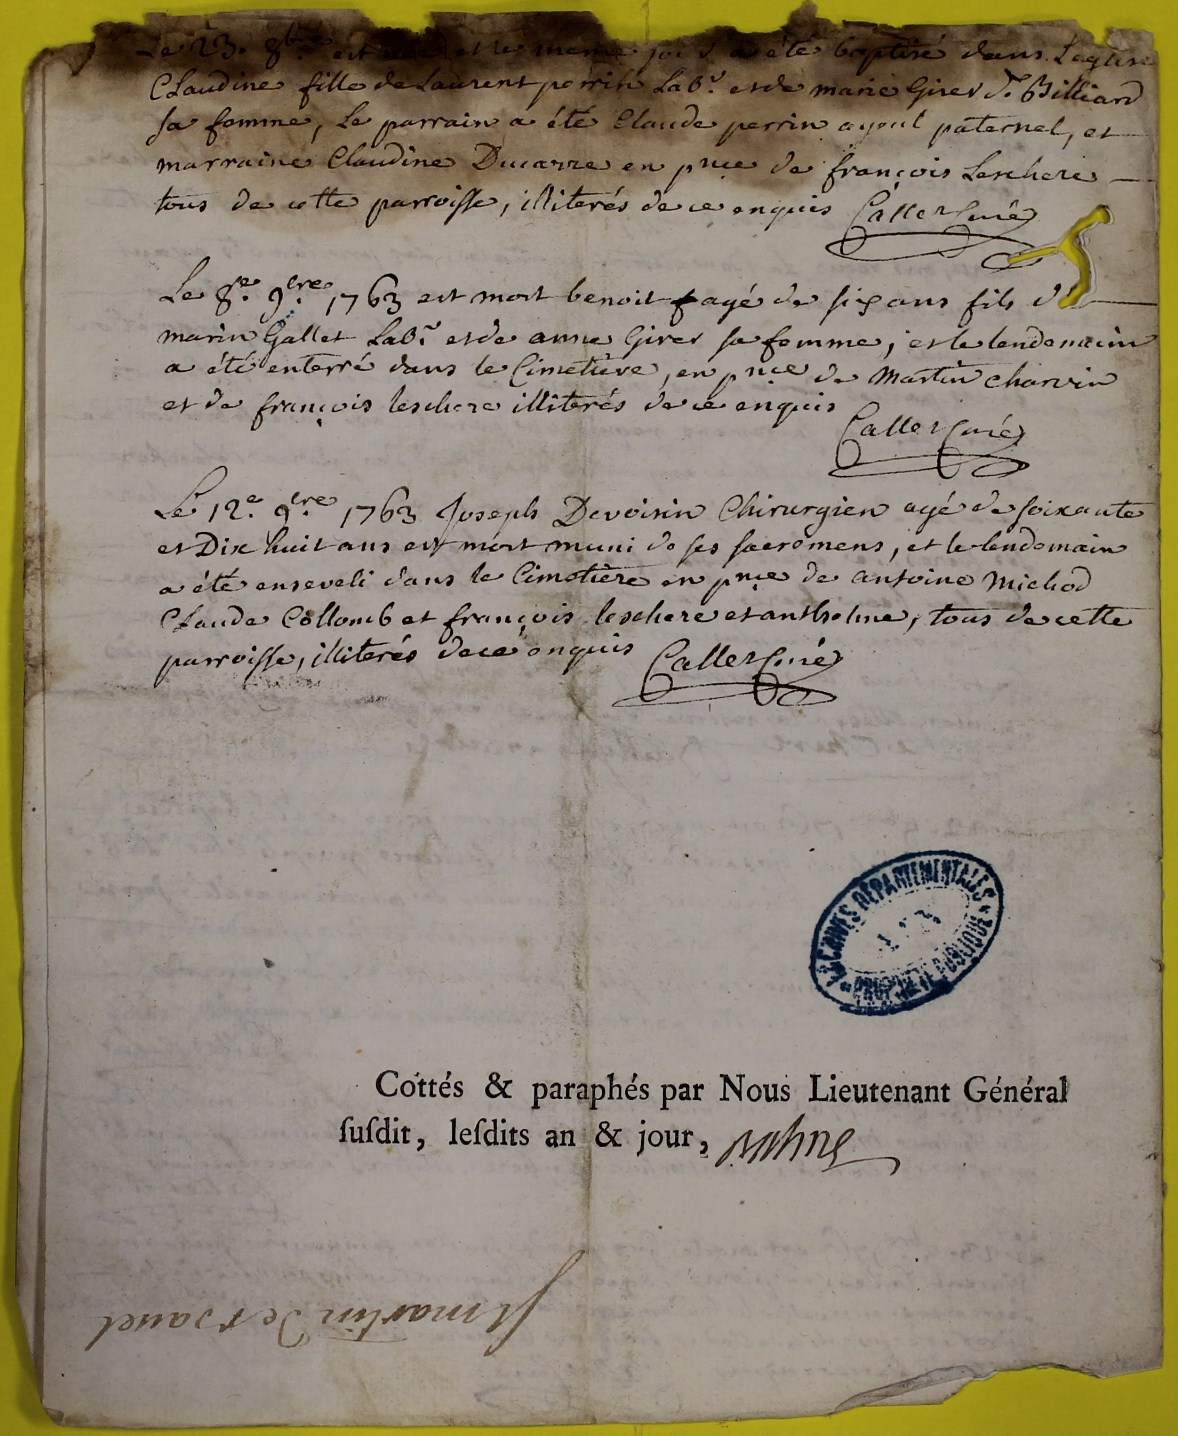 Le 23. 8bre est née et le meme jour a été baptisé dans Leglise
Claudine fille de Laurent perrin Labr. et de marie Girer de. Billiard
sa femme, Le parrain a été Claude perrin ayeul paternel, et
marraine Claudine Ducarre en pnce de françois Leschere
tous de cette parroisse, illiterés de ce enquis Caller Curé
Le 8e. 9bre. 1763 est mort benoit agé de six ans fils d
marin Gallet Labr. et de anne Girer sa femme, et le lendemain
a été enterré dans le Cimetière, en pnce de Martin charvin
et de françois leschere illiterés de ce enquis
Caller Curé
Le 12e. 9bre. 1763 Joseph Devoisin Chirurgien agé de soixante
et Dix huit ans est mort muni de ses sacremens, et le lendemain
a été enseveli dans le Cimetière en pnce de antoine Michod
Claude Collomb et françois leschere et anthelme, tous de cette
parroisse, illiterés de ce enquis Caller Curé
ARCHIVES DÉPARTEMENTALES
Cottés & paraphés par Nous Lieutenant Général
ſuſdit, leſdits an & jour,
St martin de